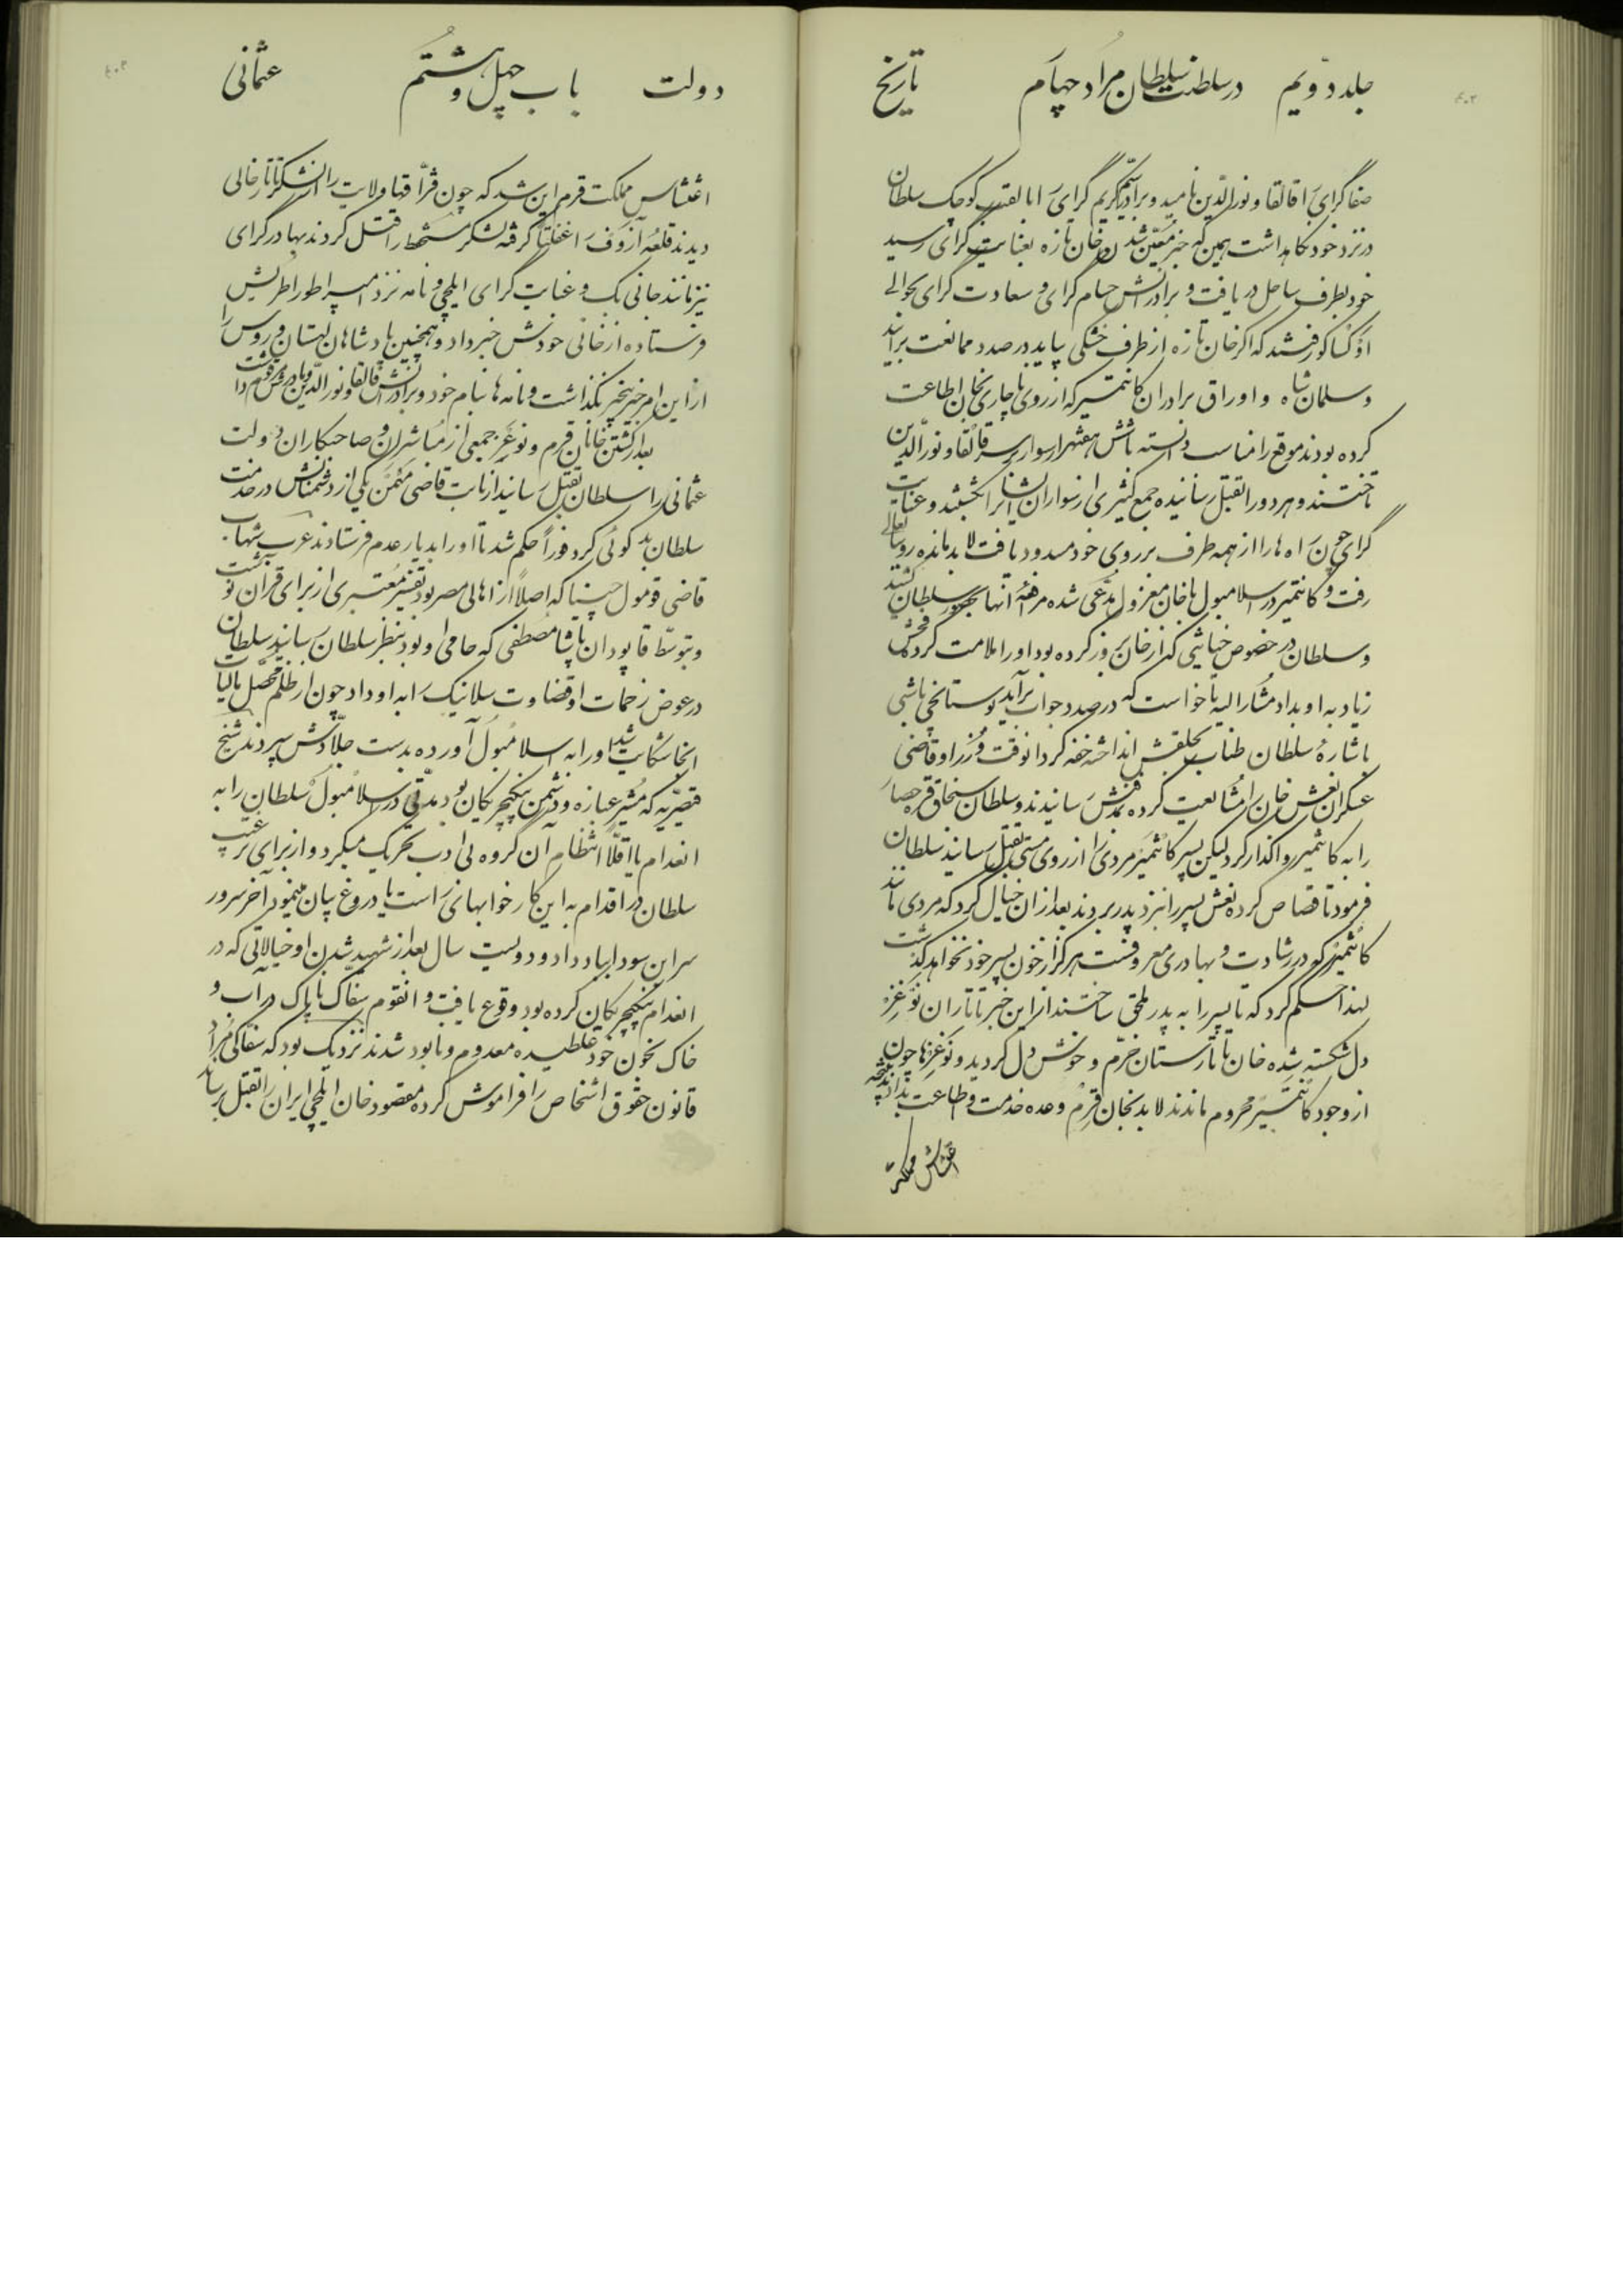 جلد دویم در سلطنت سلطان مراد چهارم تاریخ
صفا گرای را قالقا و نورالدین نامید و برادر کریم گرای را بالقب کوچک سلطان
در نزد خود نگاهداشت همین که خبر معین شدن خان تازه بعنایت گرای رسید
خود بطرف ساحل دریافت و برادرانش حسام گرای و سعادت گرای بحوالی
رفتند که اگر خان تازه از طرف خشکی بیاید در صدد ممانعت برآیند
و سلمان شاه و اوراق برادران کانتمیر که از روی ناچاری بخان اطاعت
کرده بودند موقع را مناسب دانسته با شش هفتهزار سوار بر سر قالقا و نورالدین
تاختند و هر دو را بقتل رسانیده جمع کثیری از سواران ایشانرا کشتند و عنایت
گرای چون راه ها را از همه طرف بر روی خود مسدود یافت لابد مانده روبباب عالی
رفت و کانتمیر در اسلامبول با خان معزول مدعی شده مرافعه آنها بحضور سلطان کشید
و سلطان در خصوص خیانتی که از خان بروز کرده بود او را ملامت کرده فحش
زیاد به او بداد مشارالیه تا خواست که در صدد جواب برآید بوستانچی باشی
باشاره سلطان طناب بحلقش انداخته خفه کرد آنوقت وزرا و قاضی
عسکران نعش خان را مشایعت کرده بمدفنش رسانیدند و سلطان سنجاق قره حصار
را به کانتمیر واگذار کرد لیکن پسر کانتمیر مردی را از روی مستی بقتل رسانید سلطان
فرمود تا قصاص کرده نعش پسر را نزد پدر بردند بعد از آن خیال کرد که مردی مانند
کانتمیر که در رشادت و بهادری معروفست هرگز از خون پسر خود نخواهد گذشت
لهذا حکم کرد که تا پسر را به پدر ملحق ساختند از این خبر تاتاران نوغز
دل شکسته شده خان تاتارستان خرم و خوش دل گردید و نوغزها چون
از وجود کانتمیر محروم ماندند لابد بخان قرم وعده خدمت و اطاعت بدادند نتیجه
اغتشاش مملکت
دولت باب چهل و هشتم عثمانی
اغتشاش مملکت قرم این شد که چون قزاقها ولایت را از لشکر تاتار خالی
دیدند قلعه آزوف را غفلتا گرفته لشکر مستحفظ را قتل کردند بهادر گرای
نیز مانند جانی بک و عنایت گرای ایلچی و نامه نزد امپراطور اطریش
فرستاده از خانی خودش خبر داد و همچنین پادشاهان لهستان و روس را
از این امر بیخبر نگذاشت و نامه ها بنام خود و برادرانش قالقا و نورالدین و مادرش مرقوم داشت
بعد از کشتن خانان قرم و نوغز جمعی از مباشران و صاحبکاران دولت
عثمانی را سلطان بقتل رسانید از بابت قاضی مکه یکی از دشمنانش در خدمت
سلطان بد گوئی کرد فورا حکم شد تا او را بدیار عدم فرستادند عرب شهاب
قاضی قومول جینا که اصلا از اهالی مصر بود تفسیر معتبری از برای قرآن نوشت
و بتوسط قاپودان پاشا مصطفی که حامی او بود بنظر سلطان رسانید سلطان
در عوض زحمات او قضاوت سلانیک را به او داد چون از ظلم محصل مالیات
آنجا شکایت شد او را به اسلامبول آورده بدست جلادش سپردند شیخ
قصریه که مشیر عبازه و دشمن ینکیچریکان بود مدتی در اسلامبول سلطان را به
انعدام یا اقلا انتظام آن گروه بی ادب تحریک میکرد و از برای ترغیب
سلطان در اقدام به این کار خوابهای راست یا دروغ بیان مینمود آخر سرور
سر این سودا بباد داد و دویست سال بعد از شهید شدن او خیالاتی که در
انعدام ینکیچریکان کرده بود وقوع یافت و آنقوم سفاک ناپاک در آب و
خاک بخون خود غلطیده معدوم و نابود شدند نزدیک بود که سفاکی مراد
قانون حقوق اشخاص را فراموش کرده مقصود خان ایلچی ایران را بقتل برساند